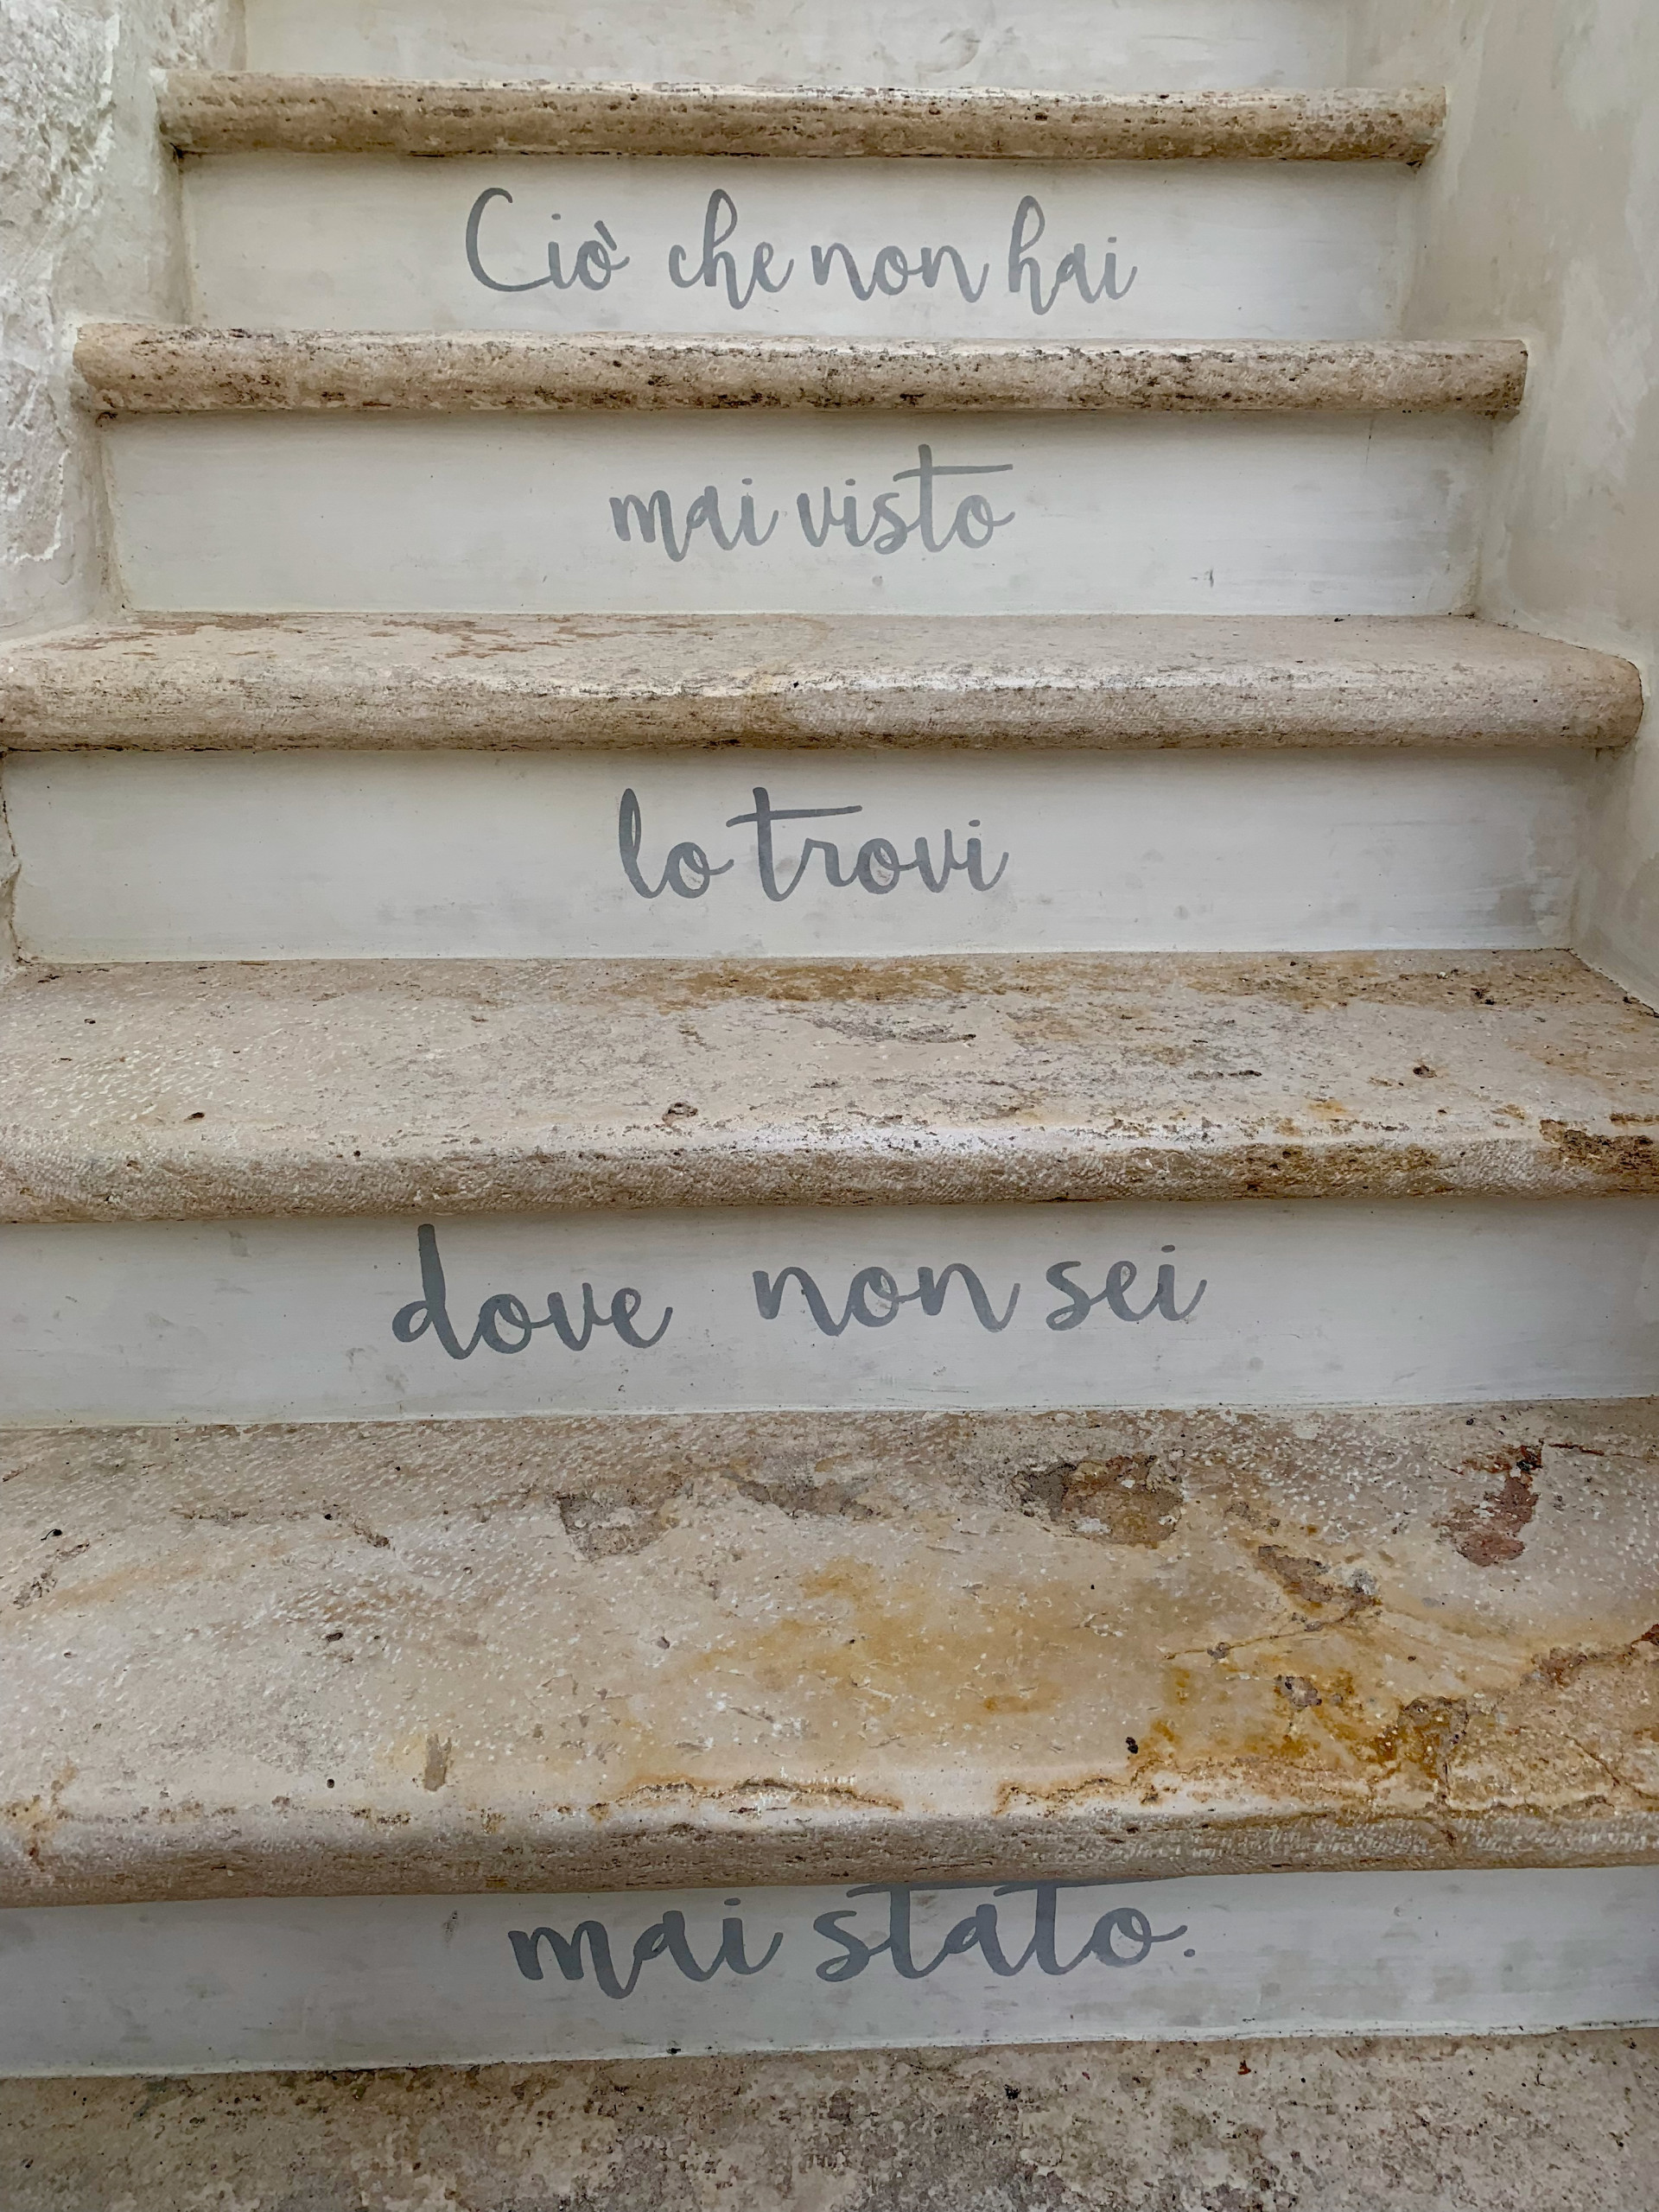 Ciò che non hai
mai visto
lo trovi
dove non sei
mai stato.